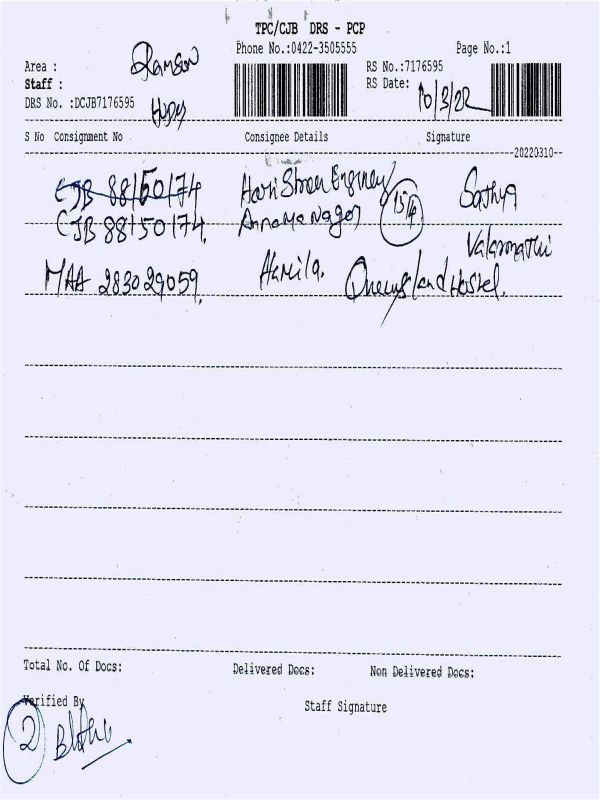 TPC/CJB DRS - PCP
Phone No.:0422-3505555 Page No.:1
Area :
RS No.:7176595
Staff :
RS Date: 10/3/22
DRS No. :DCJB7176595
S No Consignment No Consignee Details Signature
20220310
CJB 88150174 Hari Shree Sathya
CJB 88150174. Anna Nagar 15/4
Valarmathi
MAA 283029059. Queensland Hostel.
Total No. Of Docs: Delivered Docs: Non Delivered Docs:
Verified By
Staff Signature
2